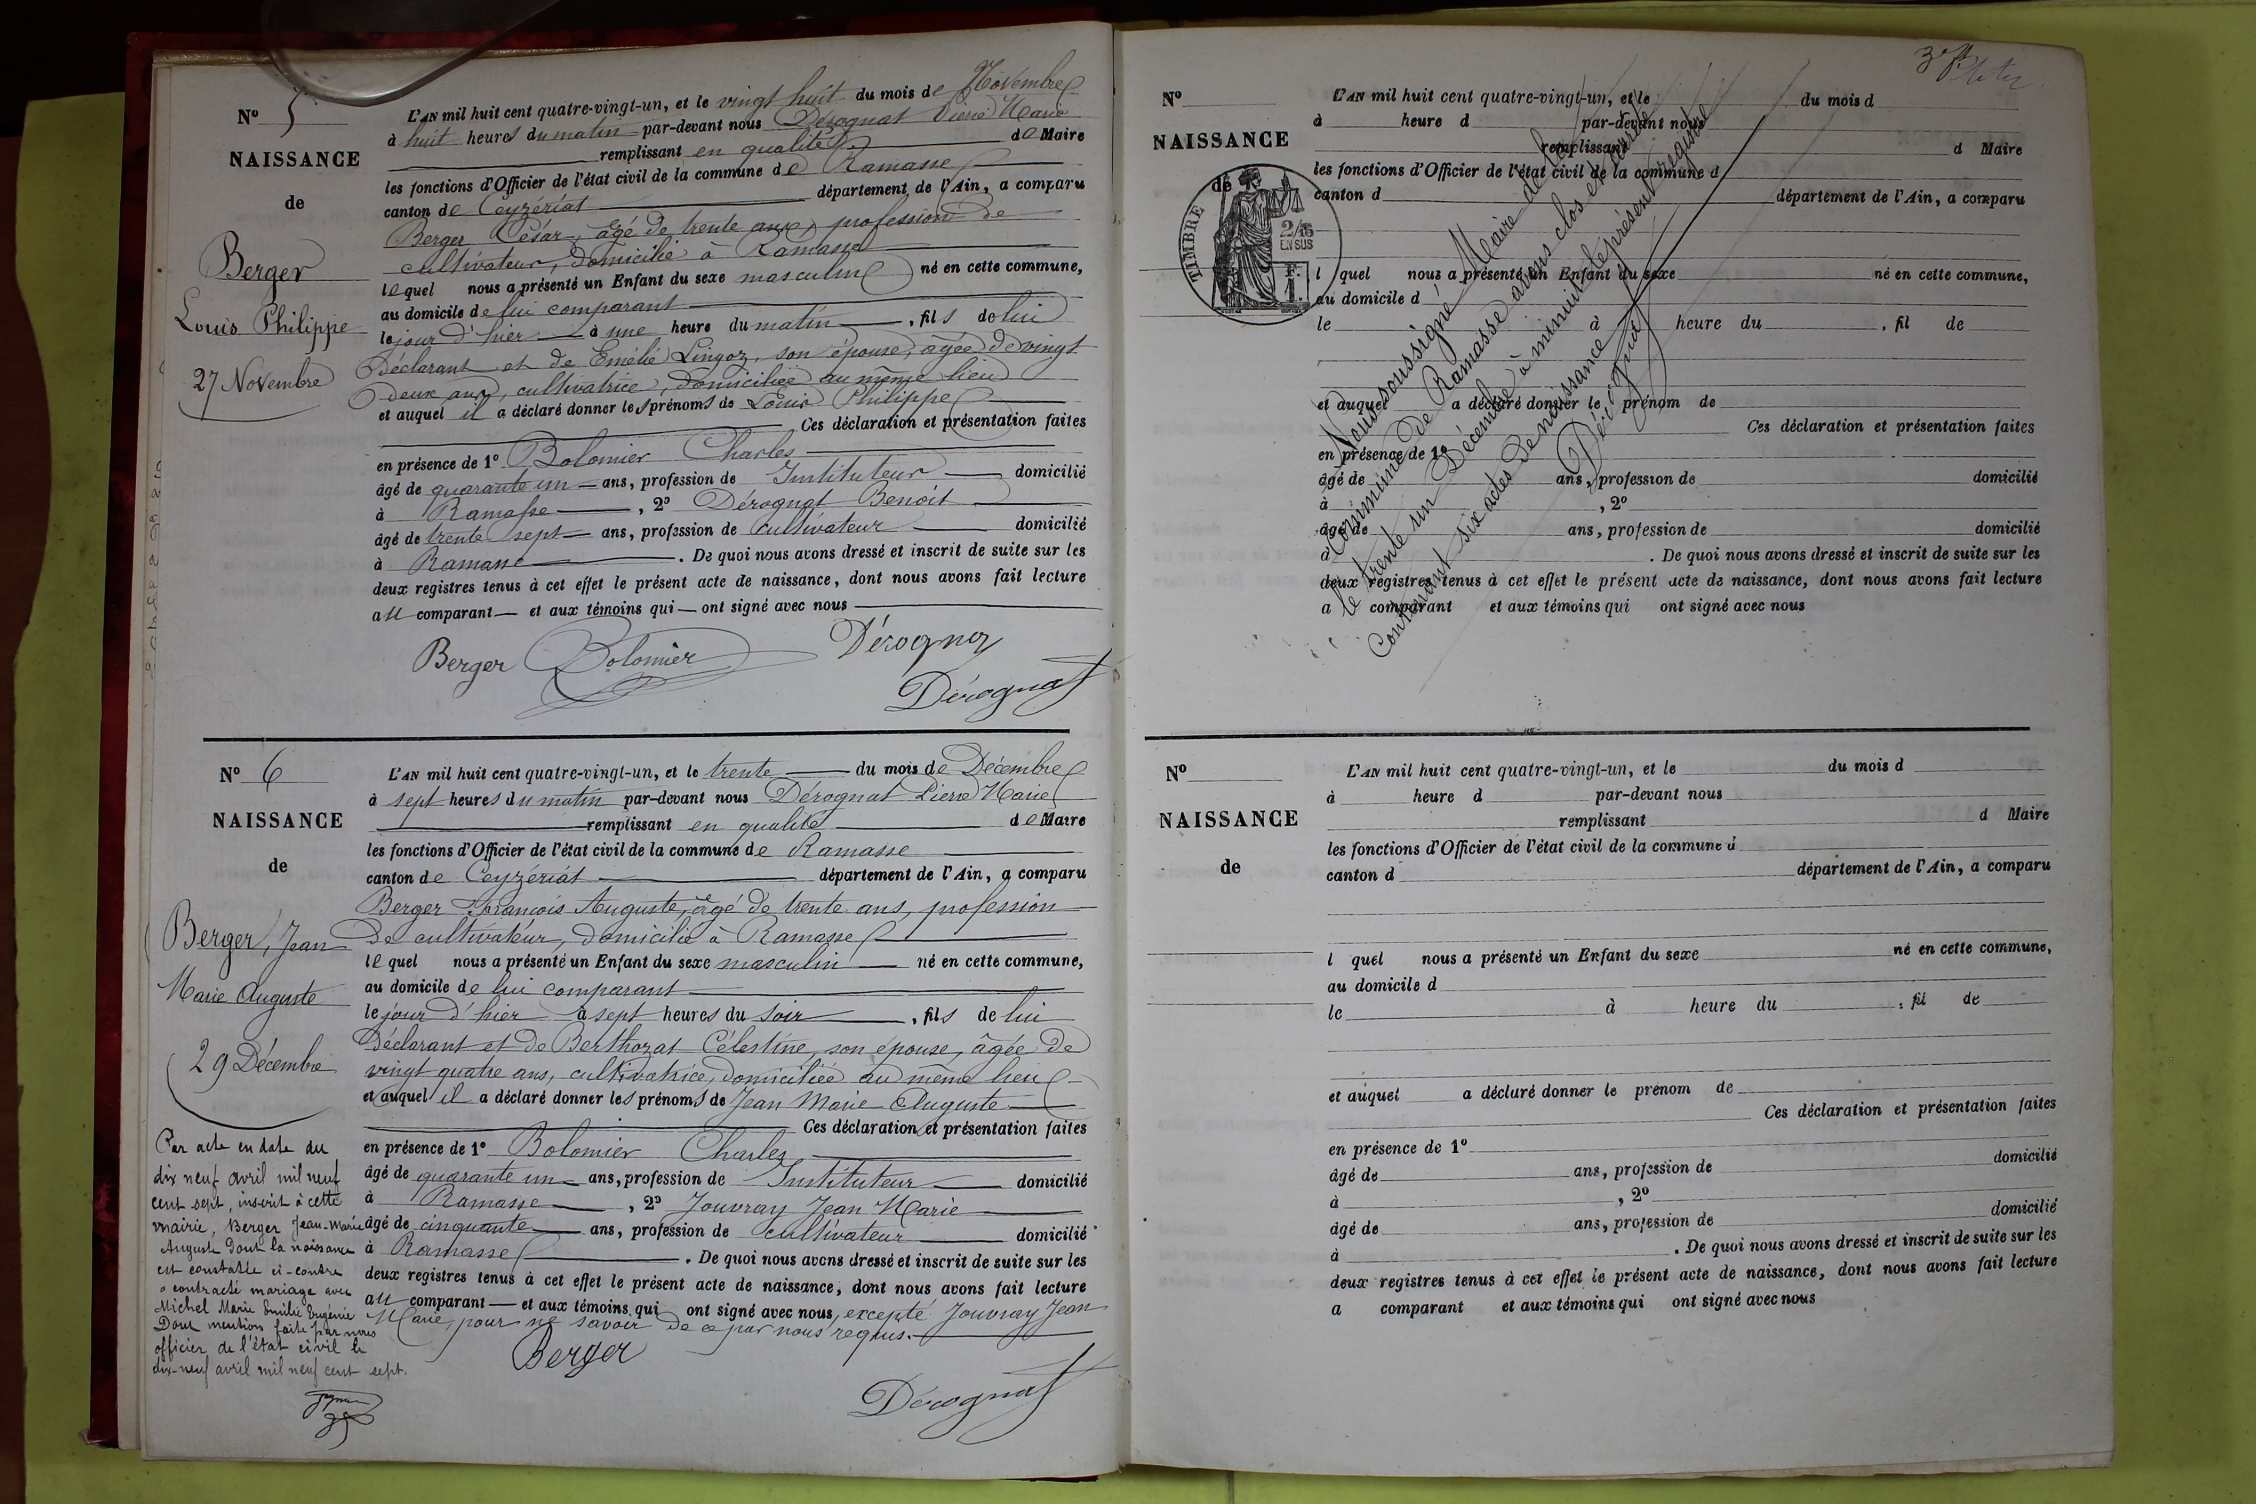 N° 5
NAISSANCE
de
Berger
Louis Philippe
27 Novembre
L'AN mil huit cent quatre-vingt-un, et le vingt huit du mois de Novembre
à huit heures du matin par-devant nous Dérognat Pierre Marie
remplissant en qualité de Maire
les fonctions d'Officier de l'état civil de la commune de Ramasse
canton de Ceyzériat département de l'Ain, a comparu
Berger César, âgé de trente ans, profession de
cultivateur, domicilié à Ramasse
lequel nous a présenté un Enfant du sexe masculin né en cette commune,
au domicile de lui comparant
le jour d'hier à une heure du matin, fils de lui
Déclarant et de Emélie Lingoz, son épouse, âgée de vingt
deux ans, cultivatrice, domiciliée au même lieu
et auquel il a déclaré donner les prénoms de Louis Philippe
Ces déclaration et présentation faites
en présence de 1° Bolomier Charles
âgé de quarante un ans, profession de Instituteur domicilié
à Ramasse, 2° Dérognat Benoit
âgé de trente sept ans, profession de cultivateur domicilié
à Ramasse. De quoi nous avons dressé et inscrit de suite sur les
deux registres tenus à cet effet le présent acte de naissance, dont nous avons fait lecture
au comparant et aux témoins qui ont signé avec nous
Berger Bolomier Dérognat
Dérognat
N° 6
NAISSANCE
de
Berger, Jean
Marie Auguste
29 Décembre
Par acte en date du
dix neuf avril mil neuf
cent sept, inscrit à cette
mairie, Berger Jean-Marie
Auguste dont la naissance
est constatée ci-contre
a contracté mariage avec
Michel Marie Emilie Eugénie
Dont mention faite par nous
officier de l'état civil le
dix-neuf avril mil neuf cent sept.
L'AN mil huit cent quatre-vingt-un, et le trente du mois de Décembre
à sept heures du matin par-devant nous Dérognat Pierre Marie
remplissant en qualité de Maire
les fonctions d'Officier de l'état civil de la commune de Ramasse
canton de Ceyzériat département de l'Ain, a comparu
Berger François Auguste, âgé de trente ans, profession
de cultivateur, domicilié à Ramasse
lequel nous a présenté un Enfant du sexe masculin né en cette commune,
au domicile de lui comparant
le jour d'hier à sept heures du soir, fils de lui
Déclarant et de Berthozat Célestine, son épouse, âgée de
vingt quatre ans, cultivatrice, domiciliée au même lieu
et auquel il a déclaré donner les prénoms de Jean Marie Auguste
Ces déclaration et présentation faites
en présence de 1° Bolomier Charles
âgé de quarante un ans, profession de Instituteur domicilié
à Ramasse, 2° Jouvray Jean Marie
âgé de cinquante ans, profession de cultivateur domicilié
à Ramasse. De quoi nous avons dressé et inscrit de suite sur les
deux registres tenus à cet effet le présent acte de naissance, dont nous avons fait lecture
au comparant et aux témoins qui ont signé avec nous, excepté Jouvray Jean
Marie, pour ne savoir de ce par nous requis.
Berger
Dérognat
N°
NAISSANCE
de
TIMBRE
2/10
EN SUS
F.
1.
L'AN mil huit cent quatre-vingt-un, et le du mois d
à heure d par-devant nous
remplissant d Maire
les fonctions d'Officier de l'état civil de la commune d
canton d département de l'Ain, a comparu
l quel nous a présenté un Enfant du sexe né en cette commune,
au domicile d
le à heure du , fil de
et auquel a déclaré donner le prénom de
Ces déclaration et présentation faites
en présence de 1°
âgé de ans, profession de domicilié
à , 2°
âgé de ans, profession de domicilié
à . De quoi nous avons dressé et inscrit de suite sur les
deux registres tenus à cet effet le présent acte de naissance, dont nous avons fait lecture
a comparant et aux témoins qui ont signé avec nous
Nous soussigné Maire de la
Commune de Ramasse avons clos et arrêté
le trente un Décembre à minuit le présent registre
Contenant six actes de naissance
Dérognat
N°
NAISSANCE
de
L'AN mil huit cent quatre-vingt-un, et le du mois d
à heure d par-devant nous
remplissant d Maire
les fonctions d'Officier de l'état civil de la commune d
canton d département de l'Ain, a comparu
l quel nous a présenté un Enfant du sexe né en cette commune,
au domicile d
le à heure du , fil de
et auquel a déclaré donner le prénom de
Ces déclaration et présentation faites
en présence de 1°
âgé de ans, profession de domicilié
à , 2°
âgé de ans, profession de domicilié
à . De quoi nous avons dressé et inscrit de suite sur les
deux registres tenus à cet effet le présent acte de naissance, dont nous avons fait lecture
a comparant et aux témoins qui ont signé avec nous